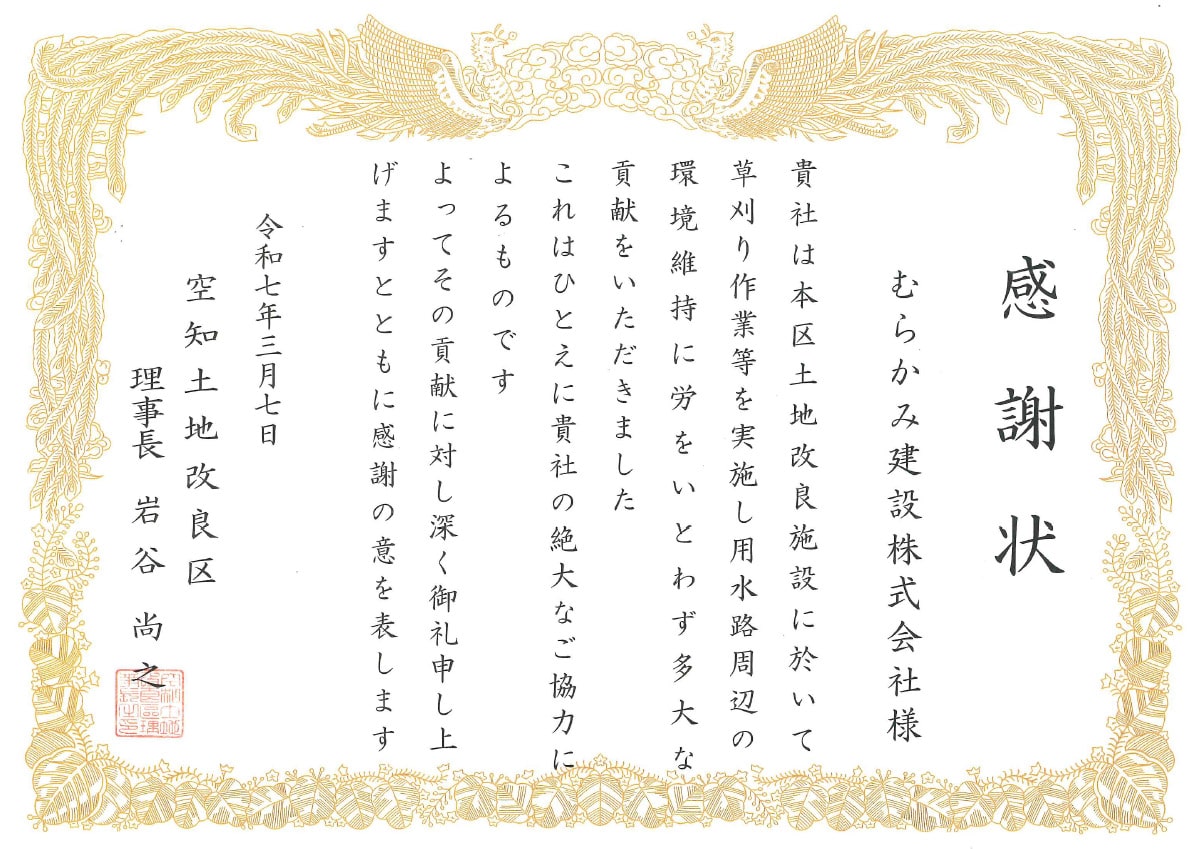 感謝状
むらかみ建設株式会社様
貴社は本区土地改良施設に於いて
草刈り作業等を実施し用水路周辺の
環境維持に労をいとわず多大な
貢献をいただきました
これはひとえに貴社の絶大なご協力に
よるものです
よってその貢献に対し深く御礼申し上
げますとともに感謝の意を表します
令和七年三月七日
空知土地改良区
理事長 岩谷 尚之